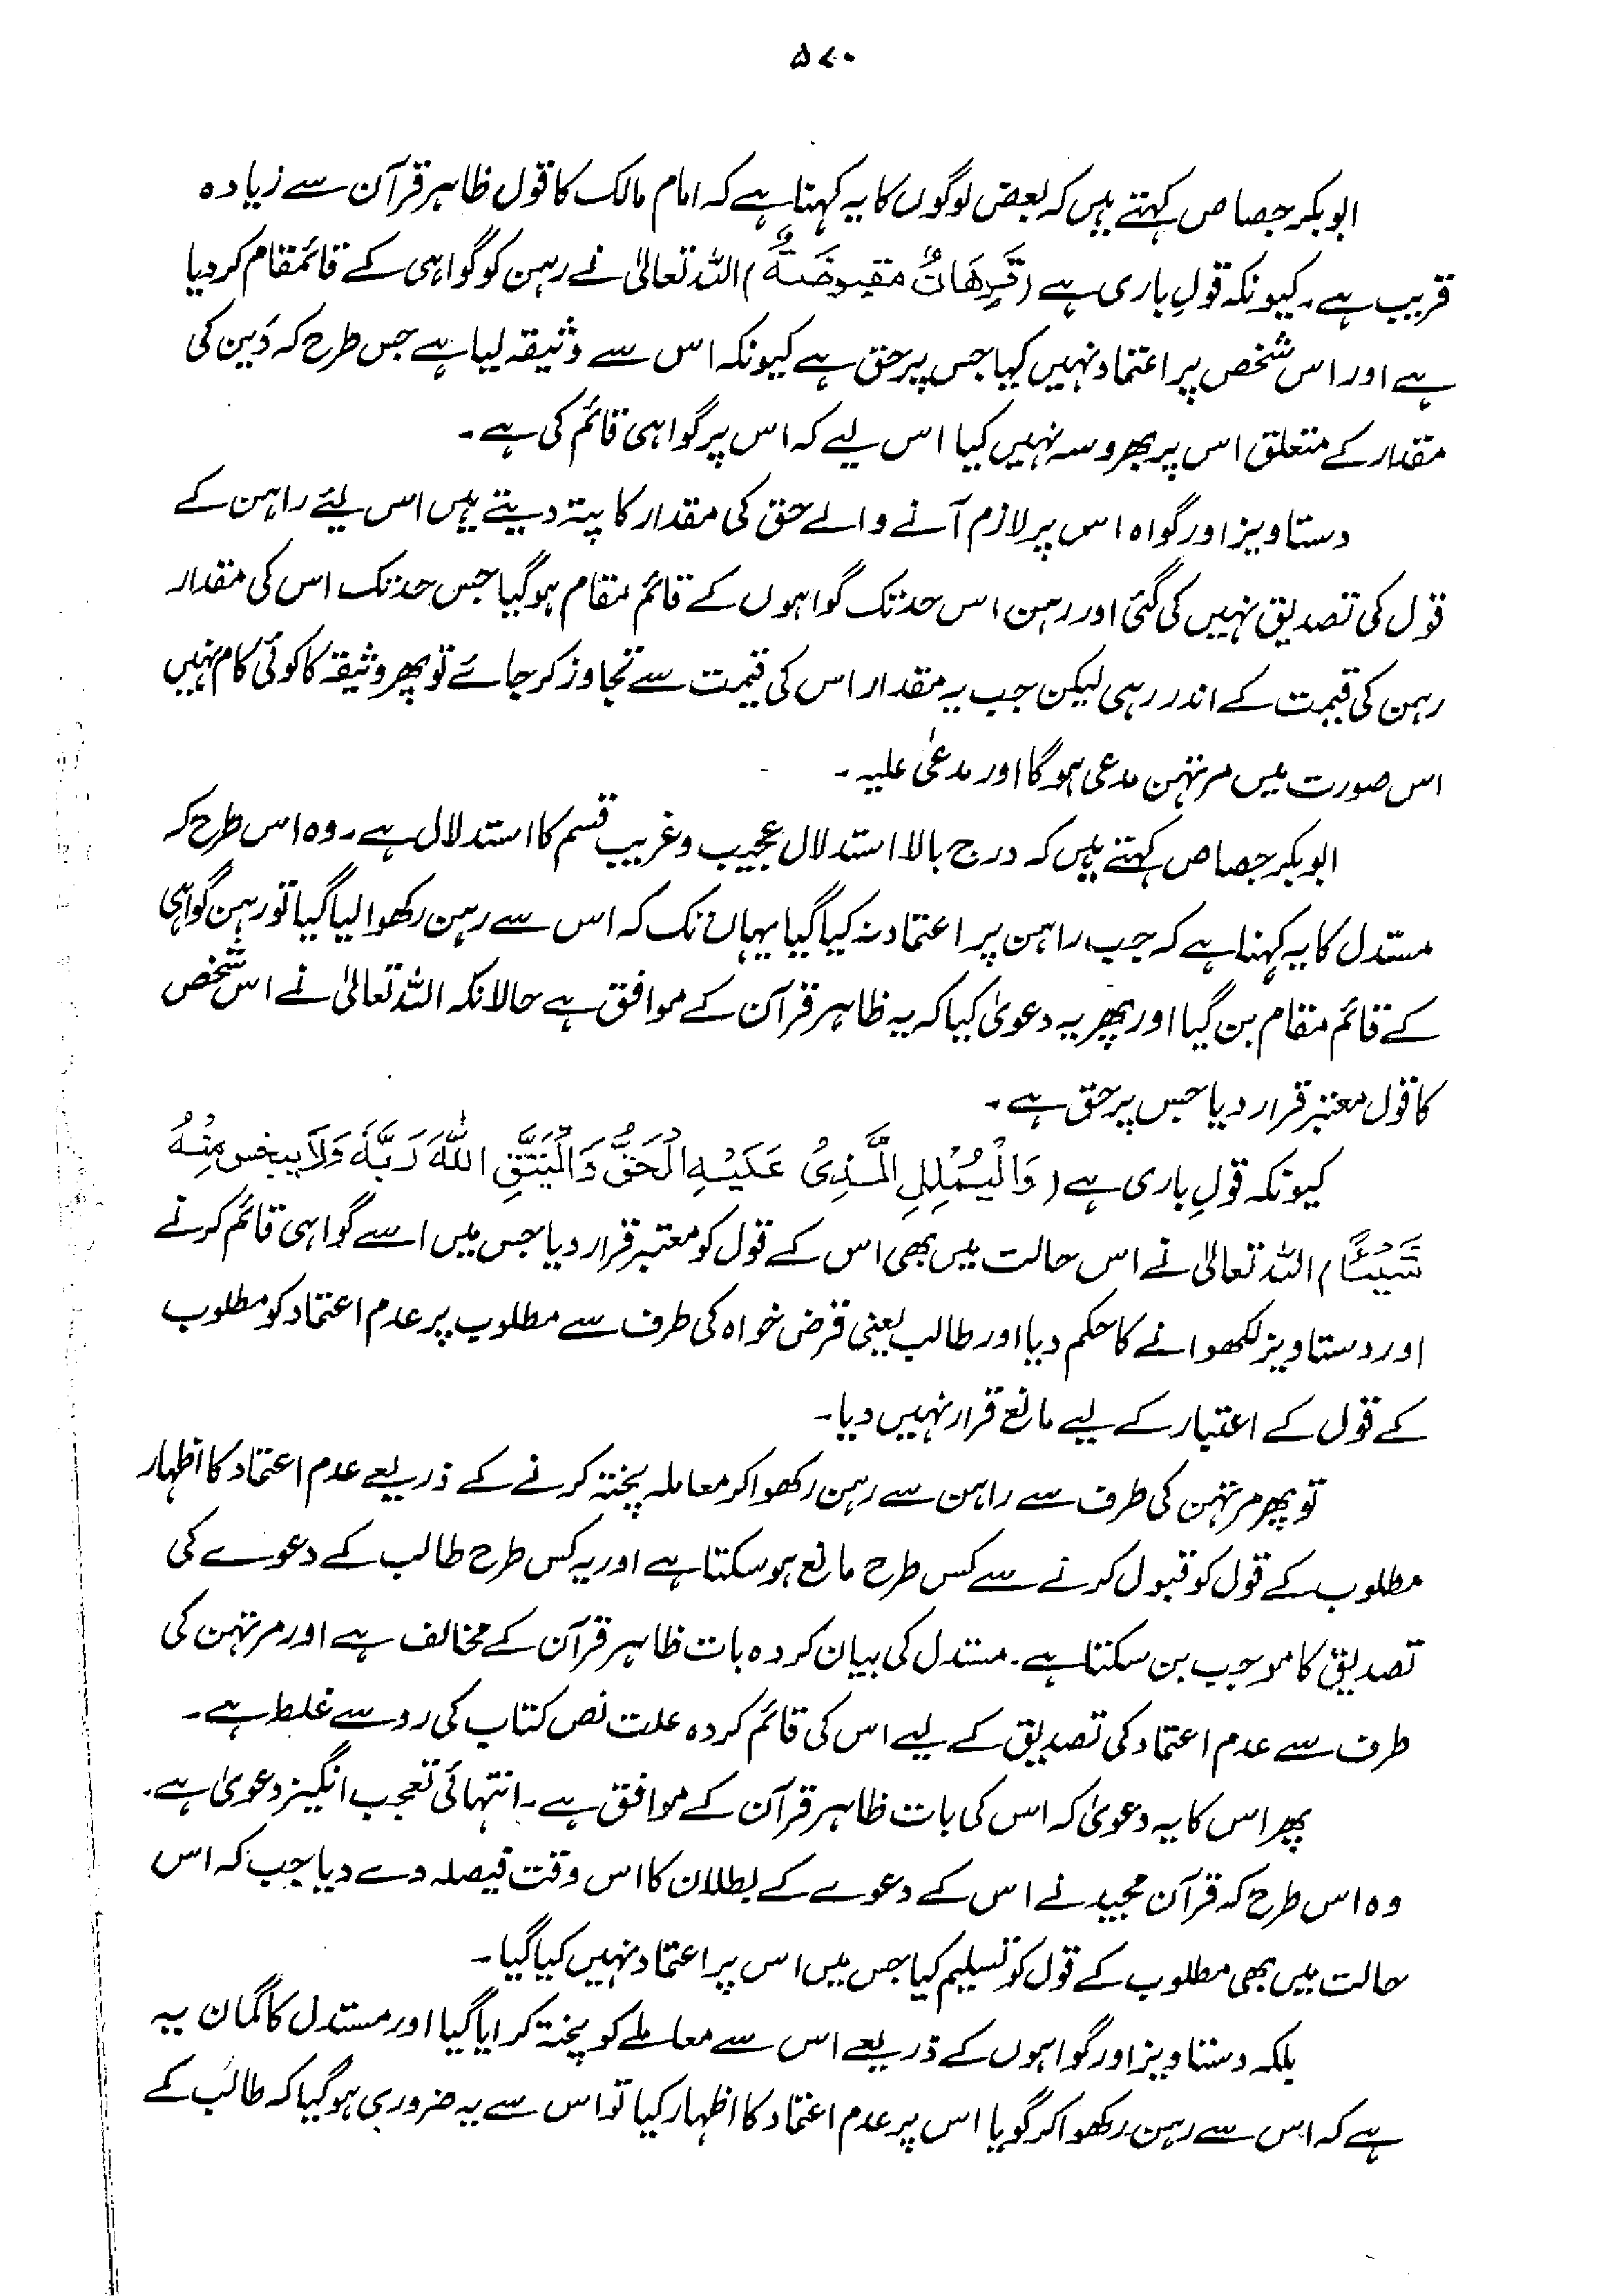 ۵۷۰
ابوبکر جصاص کہتے ہیں کہ بعض لوگوں کا یہ کہنا ہے کہ امام مالک کا قول ظاہر قرآن سے زیادہ
قریب ہے۔ کیونکہ قولِ باری ہے (فَرِهَانٌ مَّقْبُوضَةٌ) اللہ تعالیٰ نے رہن کو گواہی کے قائمقام کر دیا
ہے اور اس شخص پر اعتماد نہیں کیا جس پر حق ہے کیونکہ اس سے وثیقہ لیا ہے جس طرح کہ دَین کی
مقدار کے متعلق اس پر بھروسہ نہیں کیا اس لیے کہ اس پر گواہی قائم کی ہے۔
دستاویز اور گواہ اس پر لازم آنے والے حق کی مقدار کا پتہ دیتے ہیں اس لیئے راہن کے
قول کی تصدیق نہیں کی گئی اور رہن اس حد تک گواہوں کے قائم مقام ہو گیا جس حد تک اس کی مقدار
رہن کی قیمت کے اندر رہی لیکن جب یہ مقدار اس کی قیمت سے تجاوز کر جائے تو پھر وثیقہ کا کوئی کام نہیں
اس صورت میں مرتہن مدعی ہو گا اور مدعیٰ علیہ۔
ابوبکر جصاص کہتے ہیں کہ درج بالا استدلال عجیب و غریب قسم کا استدلال ہے۔ وہ اس طرح کہ
مستدل کا یہ کہنا ہے کہ جب راہن پر اعتماد نہ کیا گیا یہاں تک کہ اس سے رہن رکھوا لیا گیا تو رہن گواہی
کے قائم مقام بن گیا اور پھر یہ دعویٰ کیا کہ یہ ظاہر قرآن کے موافق ہے حالانکہ اللہ تعالیٰ نے اس شخص
کا قول معتبر قرار دیا جس پر حق ہے۔
کیونکہ قولِ باری ہے (وَالْيُمْلِلِ الَّذِىْ عَلَيْهِ الْحَقُّ وَالْيَتَّقِ اللّٰهَ رَبَّهٗ وَلَا يَبْخَسْ مِنْهُ
شَيْئًا) اللہ تعالیٰ نے اس حالت میں بھی اس کے قول کو معتبر قرار دیا جس میں اسے گواہی قائم کرنے
اور دستاویز لکھوانے کا حکم دیا اور طالب یعنی قرض خواہ کی طرف سے مطلوب پر عدم اعتماد کو مطلوب
کے قول کے اعتبار کے لیے مانع قرار نہیں دیا۔
تو پھر مرتہن کی طرف سے راہن سے رہن رکھوا کر معاملہ پختہ کرنے کے ذریعے عدم اعتماد کا اظہار
مطلوب کے قول کو قبول کرنے سے کس طرح مانع ہو سکتا ہے اور یہ کس طرح طالب کے دعوے کی
تصدیق کا موجب بن سکتا ہے۔ مستدل کی بیان کردہ بات ظاہر قرآن کے مخالف ہے اور مرتہن کی
طرف سے عدم اعتماد کی تصدیق کے لیے اس کی قائم کردہ علت نص کتاب کی رو سے غلط ہے۔
پھر اس کا یہ دعویٰ کہ اس کی بات ظاہر قرآن کے موافق ہے۔ انتہائی تعجب انگیز دعویٰ ہے۔
وہ اس طرح کہ قرآن مجید نے اس کے دعوے کے بطلان کا اس وقت فیصلہ دے دیا جب کہ اس
حالت میں بھی مطلوب کے قول کو تسلیم کیا جس میں اس پر اعتماد نہیں کیا گیا۔
بلکہ دستاویز اور گواہوں کے ذریعے اس سے معاملے کو پختہ کرایا گیا اور مستدل کا گمان یہ
ہے کہ اس سے رہن رکھوا کر گویا اس پر عدم اعتماد کا اظہار کیا تو اس سے یہ ضروری ہو گیا کہ طالب کے